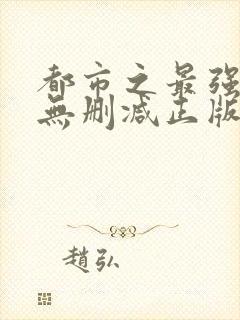 都市之最强
無删减正版
趙弘